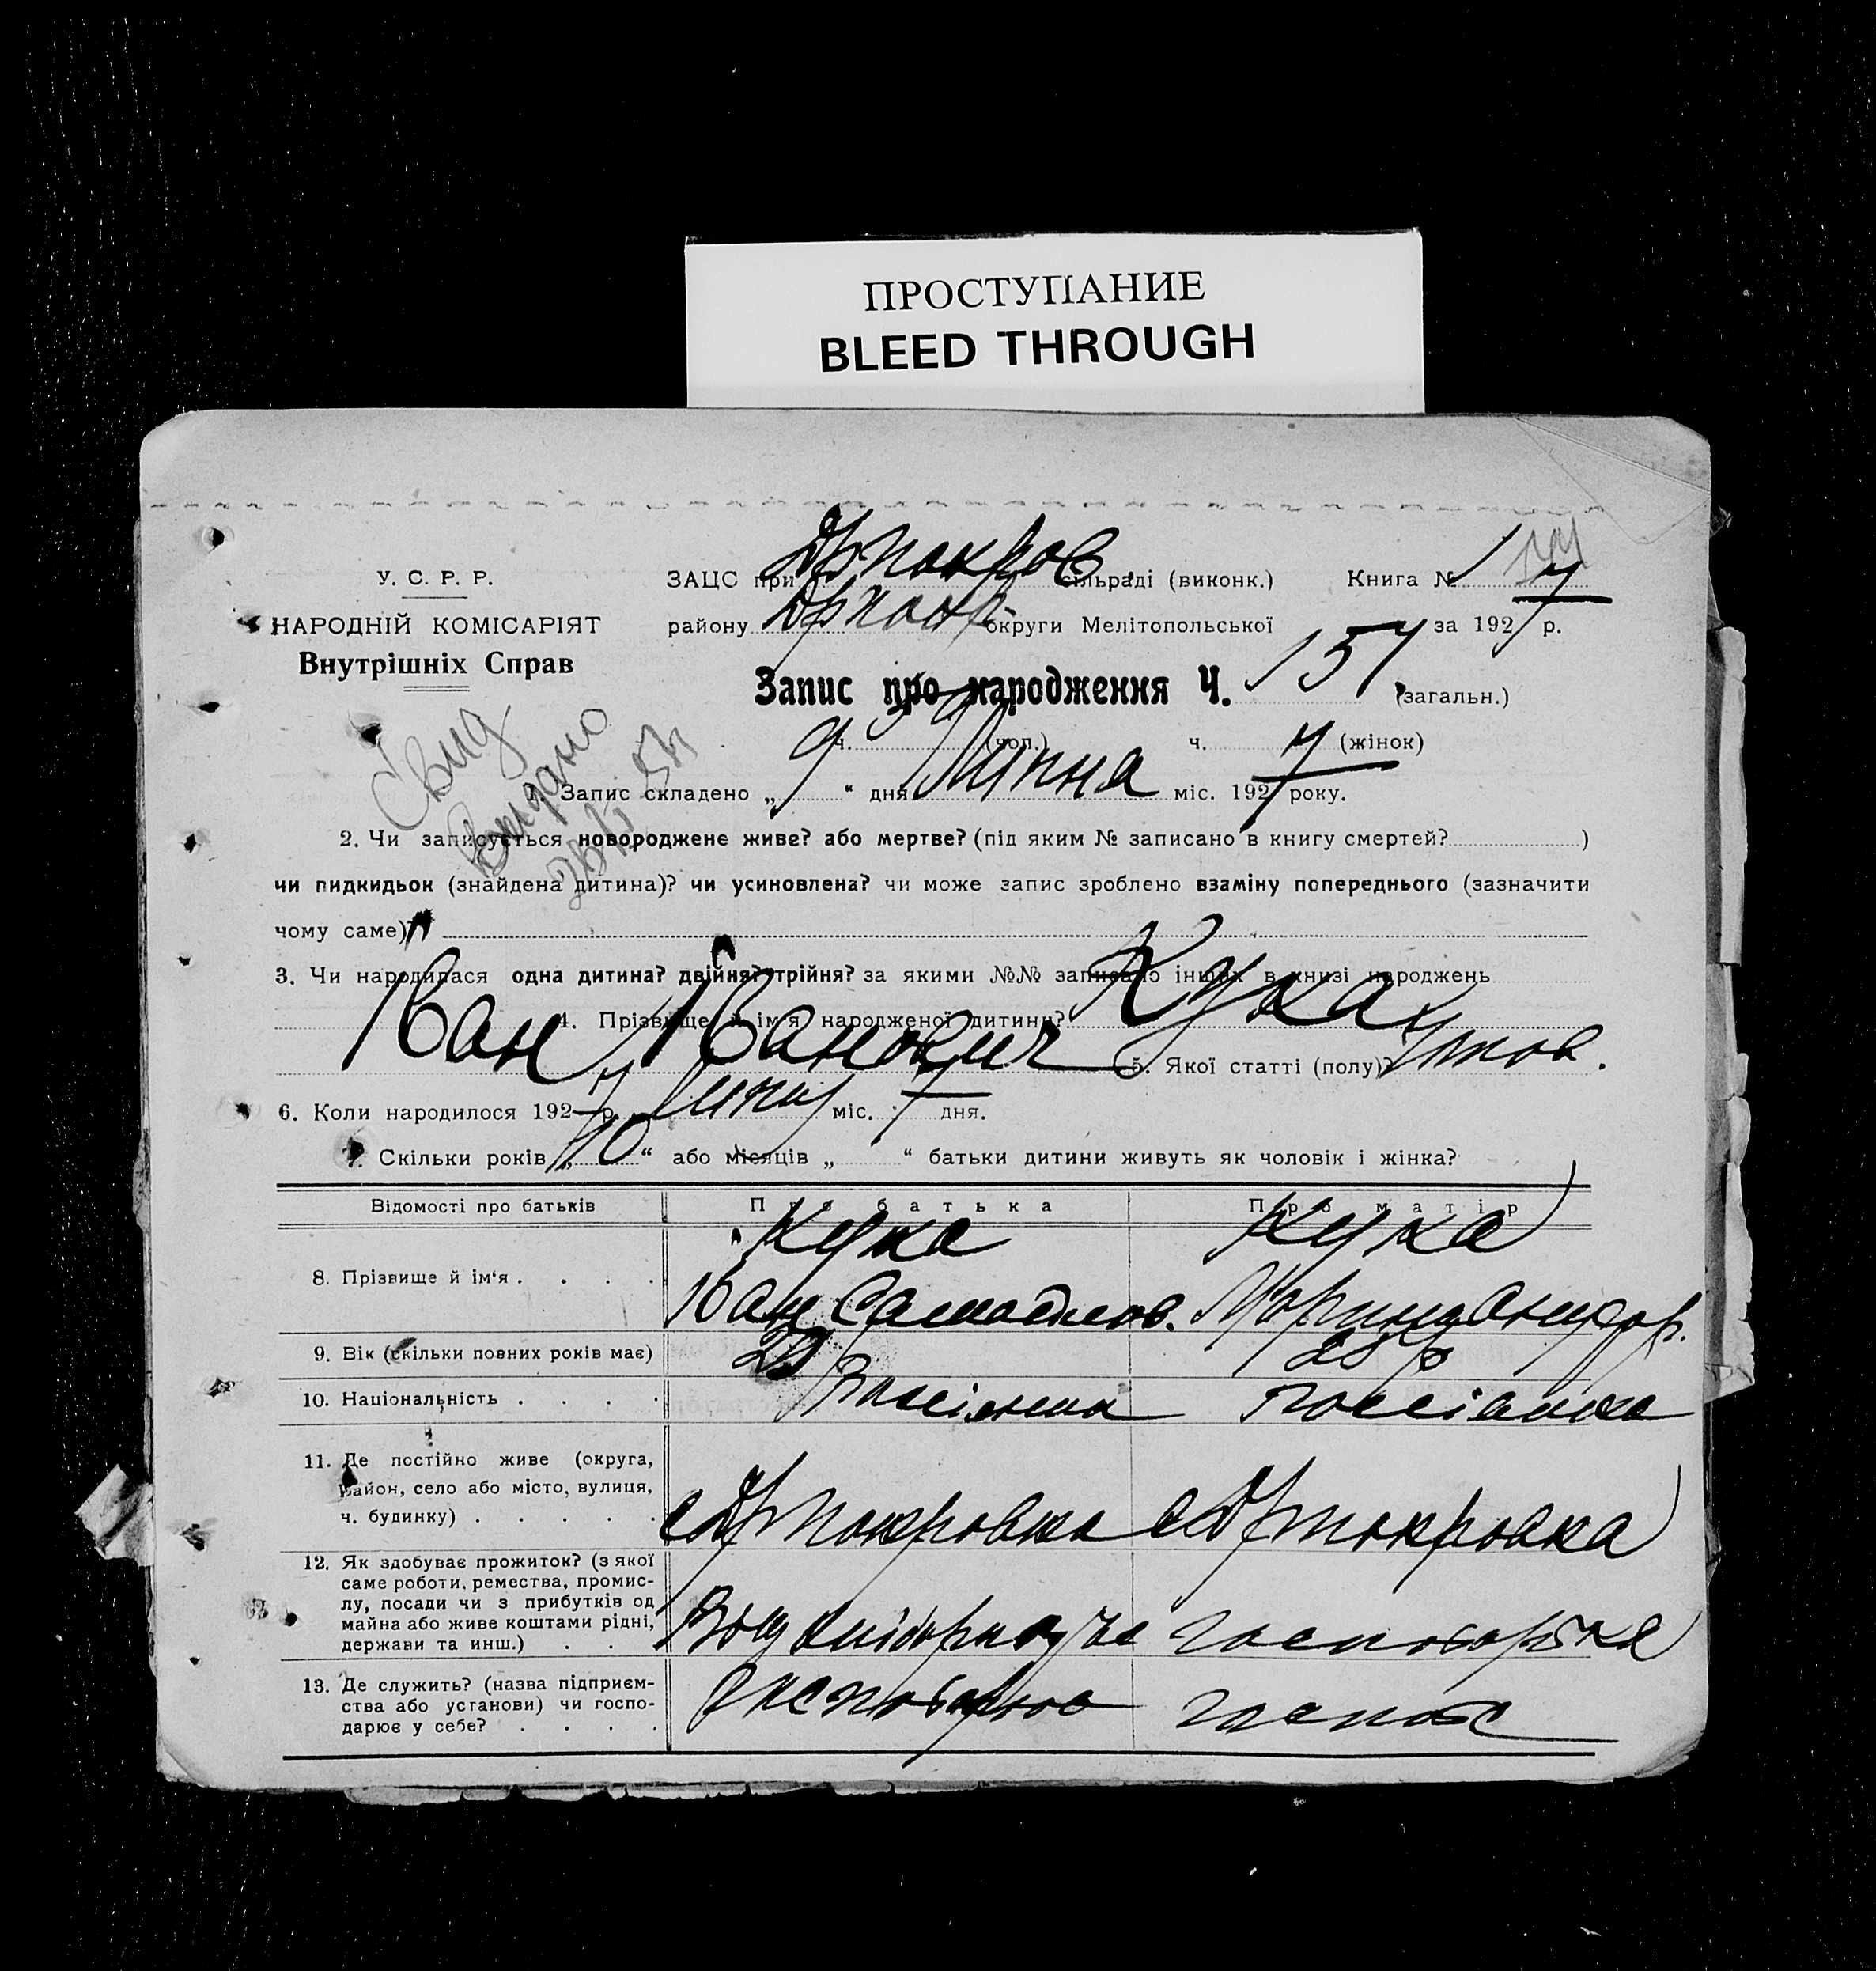 ПРОСТУПАНИЕ
BLEED THROUGH
У. С. Р. Р.
НАРОДНІЙ КОМІСАРІЯТ
Внутрішніх Справ
ЗАЦС при Др покров. сільраді (виконк.) Книга № 1
району Др покр. округи Мелітопольської за 1927 р.
Запис про народження Ч. 157 (загальн.)
ч. (чол.) ч. (жінок)
1. Запис складено „9“ дня Липня міс. 1927 року.
Свид
Выдано
2. Чи записується новороджене живе? або мертве? (під яким № записано в книгу смертей? )
чи пидкидьок (знайдена дитина)? чи усиновлена? чи може запис зроблено взаміну попереднього (зазначити
чому саме)?
3. Чи народилася одна дитина? двійня? трійня? за якими №№ записано інших в книзі народжень
4. Прізвище й ім'я народженої дитини? Кука
Іван Іванович 5. Якої статті (полу)? чолов.
6. Коли народилося 1927 р. Липня міс. 7 дня.
7. Скільки років „10“ або місяців „ “ батьки дитини живуть як чоловік і жінка?
Відомості про батьків Про батька Про матір
8. Прізвище й ім'я . . . . Кука Кука
Іван Самойлов. Марина
9. Вік (скільки повних років має) 29 28
10. Національність . . . . Россіянин Россіянка
11. Де постійно живе (округа,
район, село або місто, вулиця,
ч. будинку) . . . . . с Др Покровка с Др Покровка
12. Як здобуває прожиток? (з якої
саме роботи, ремества, промис-
лу, посади чи з прибутків од
майна або живе коштами рідні,
держави та инш.) . . . господарка
13. Де служить? (назва підприєм-
ства або установи) чи госпо-
дарює у себе? . . . .